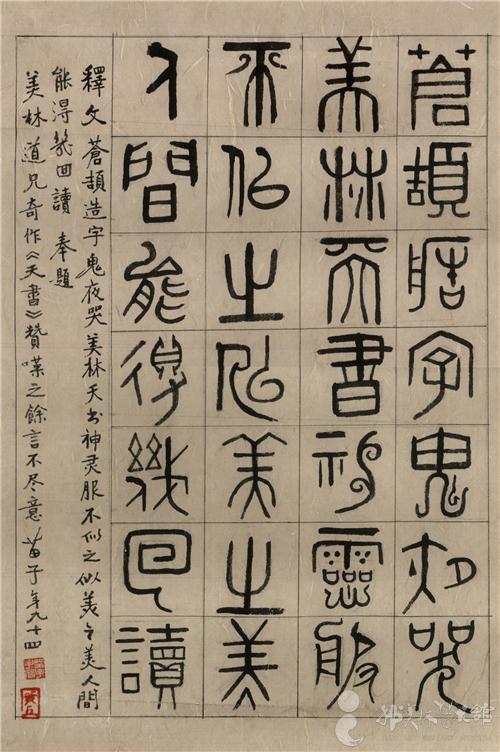 蒼頡造字鬼夜哭
美林天書神靈服
不似之似美之美
人間能得幾回讀
釋文 蒼頡造字鬼夜哭美林天书神灵服不似之似美之美人間
能得幾回讀 奉題
美林道兄奇作《天書》贊嘆之餘言不尽意 苗子年九十四